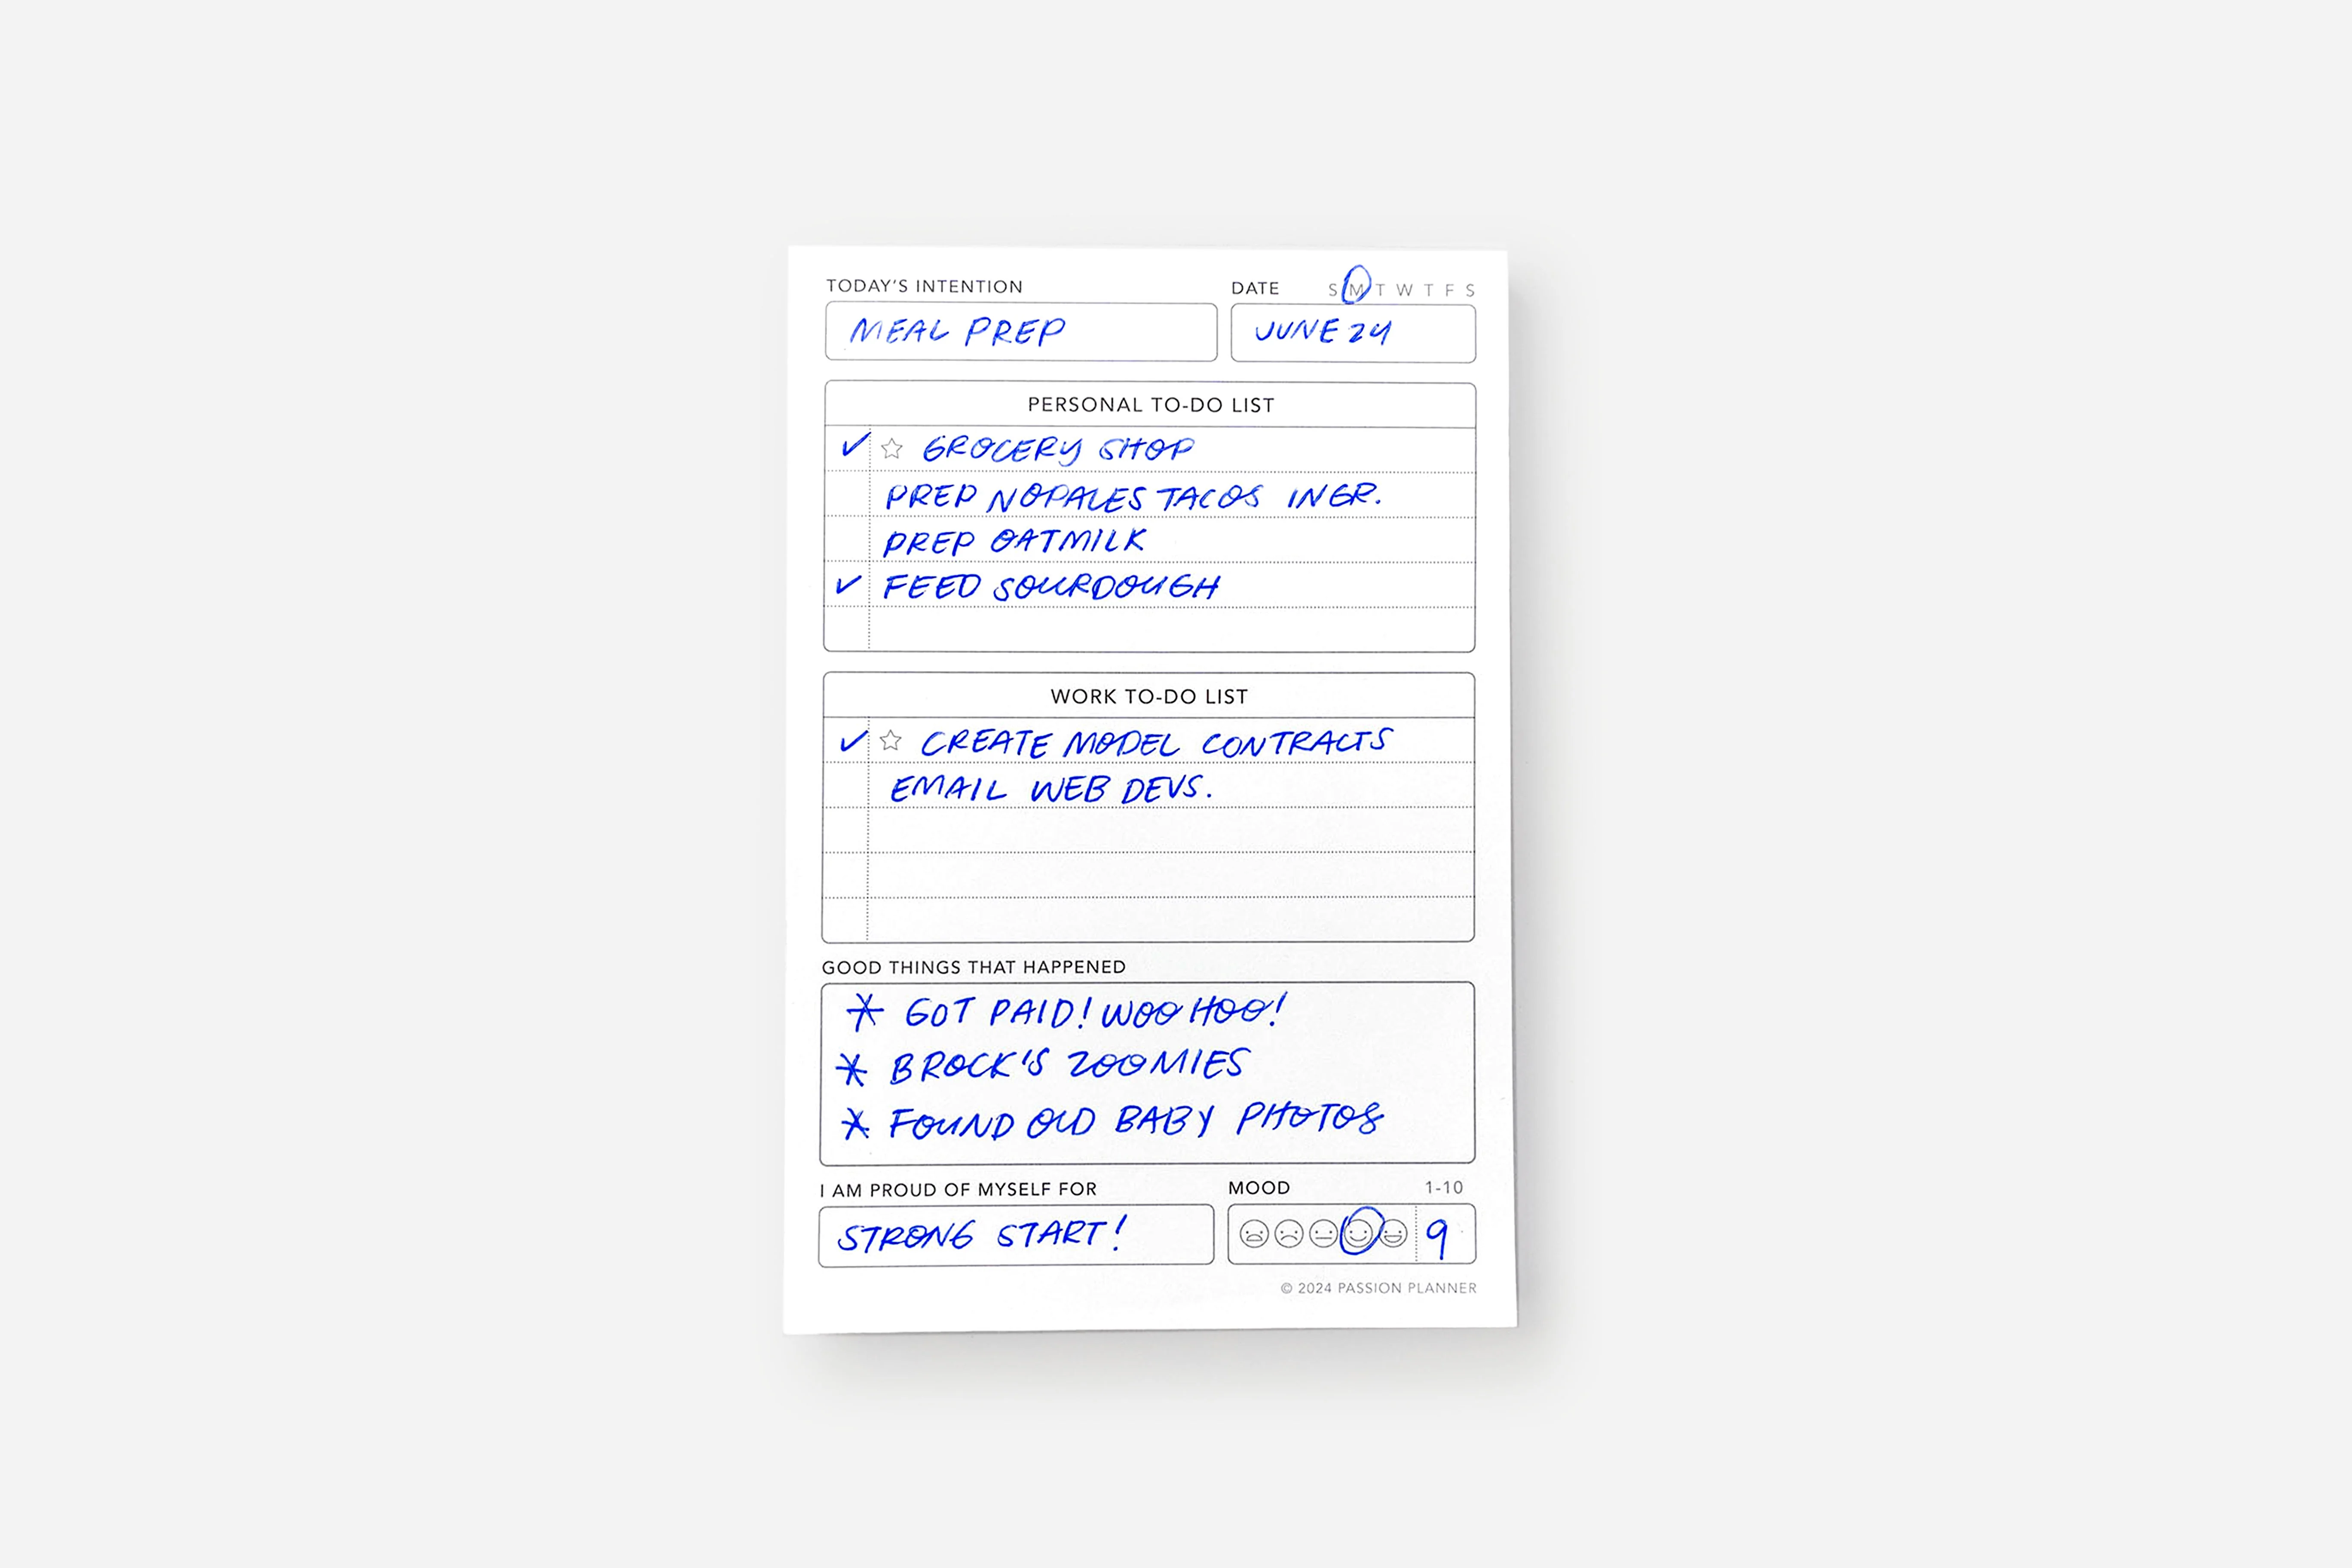 TODAY'S INTENTION
DATE S M T W T F S
MEAL PREP
JUNE 24
PERSONAL TO-DO LIST
GROCERY SHOP
PREP NOPALES TACOS INGR.
PREP OATMILK
FEED SOURDOUGH
WORK TO-DO LIST
CREATE MODEL CONTRACTS
EMAIL WEB DEVS.
GOOD THINGS THAT HAPPENED
* GOT PAID! WOO HOO!
* BROCK'S ZOOMIES
* FOUND OLD BABY PHOTOS
I AM PROUD OF MYSELF FOR
MOOD 1-10
STRONG START!
9
© 2024 PASSION PLANNER